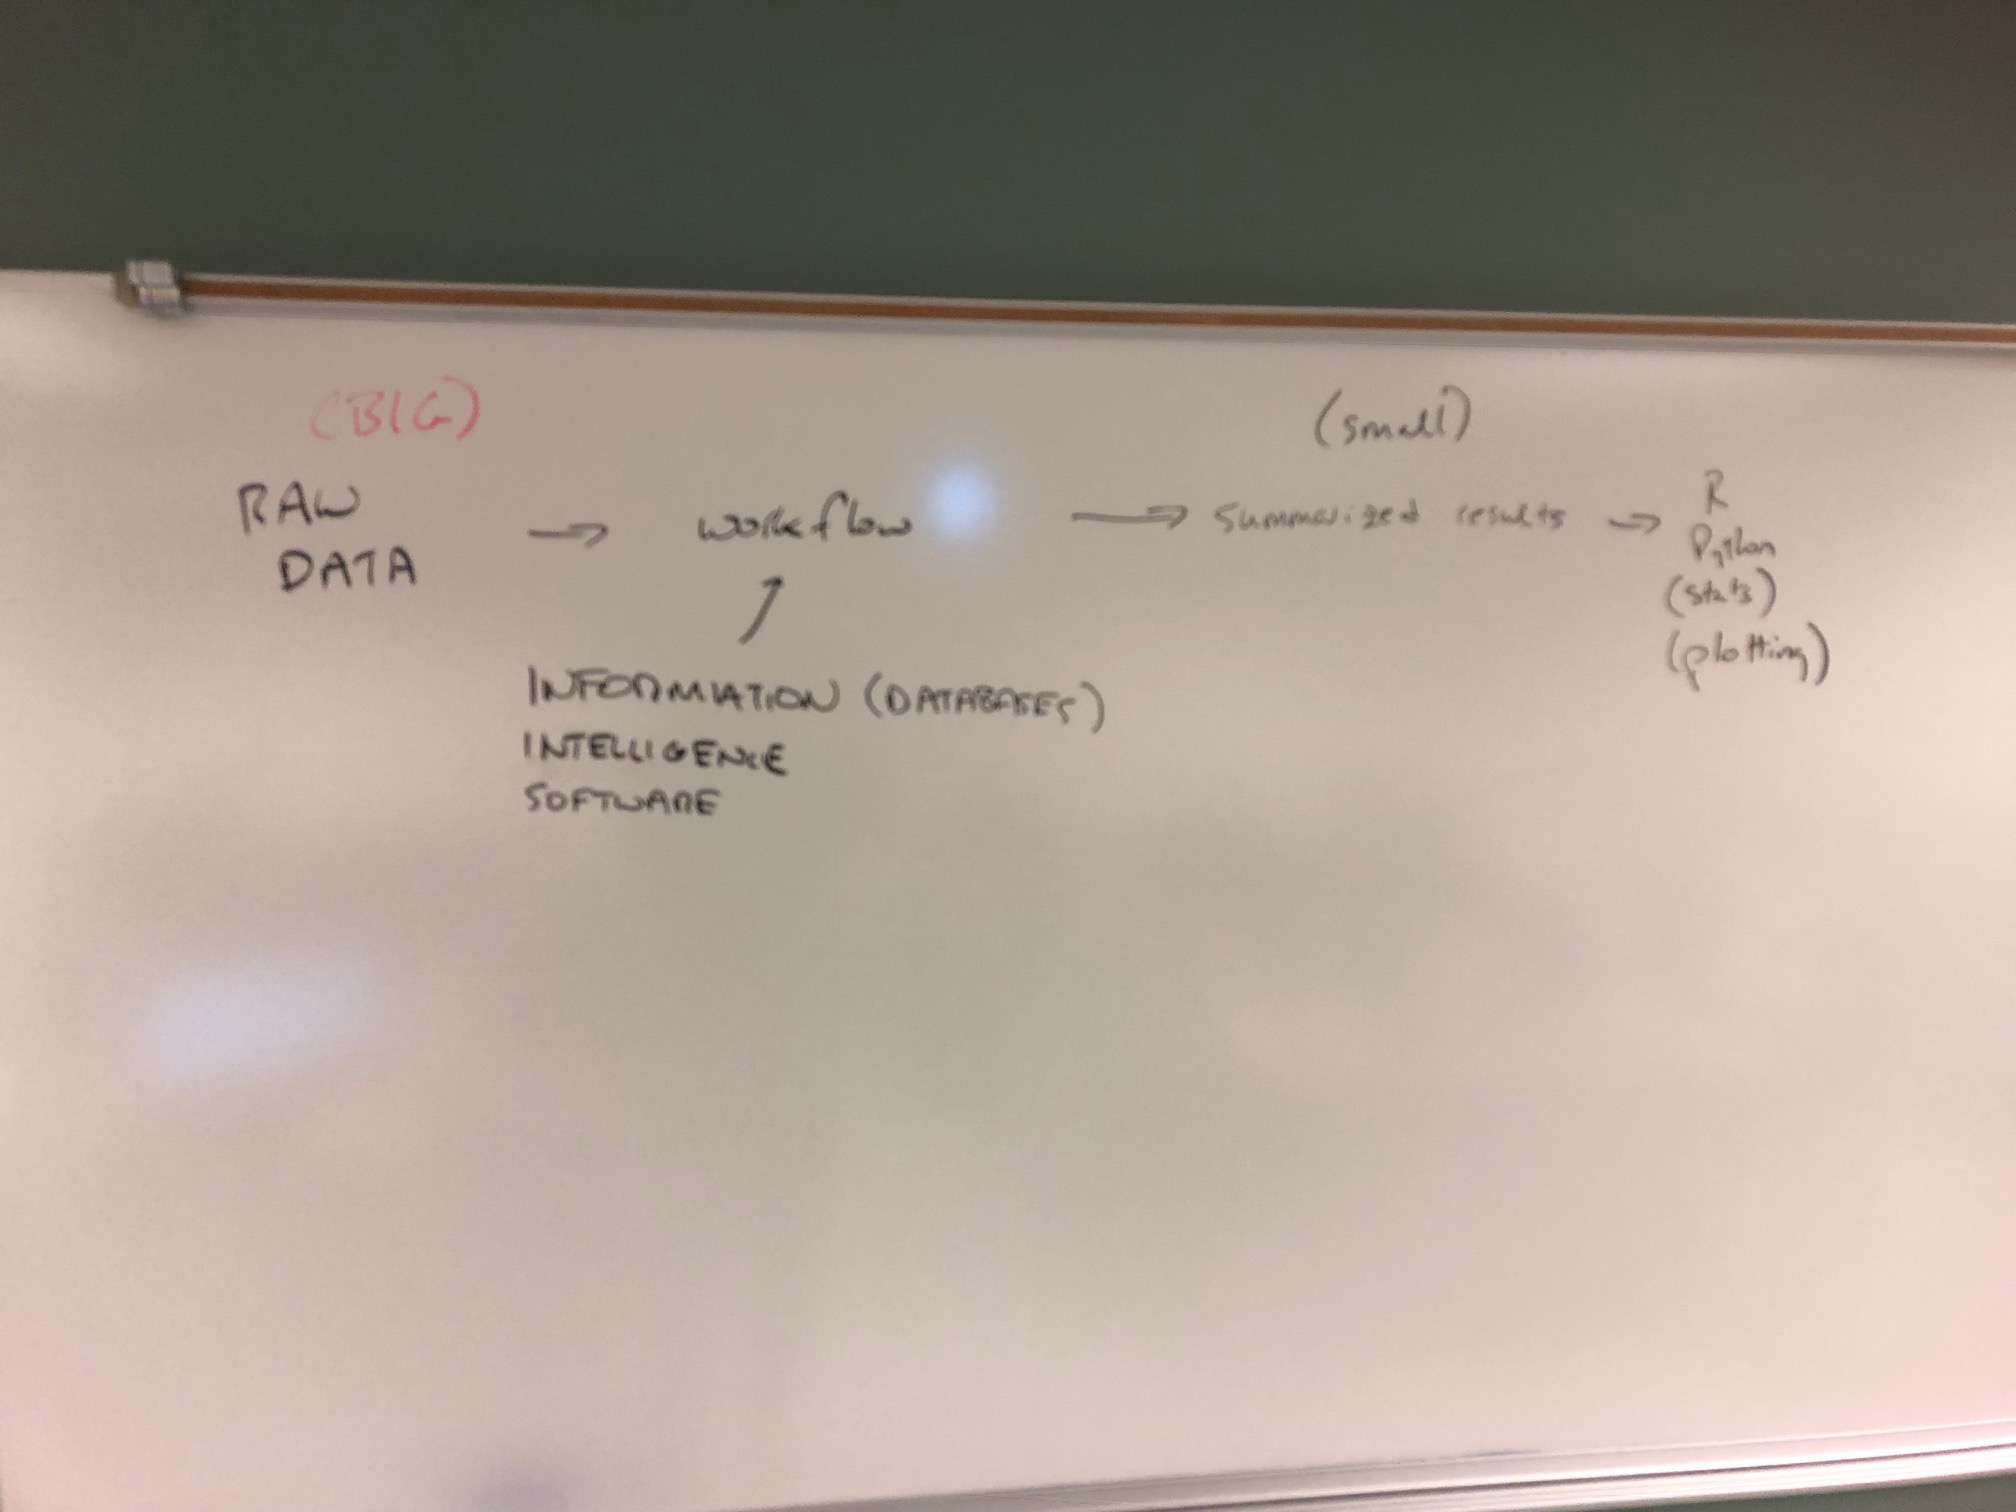 (BIG)
(small)
RAW
DATA
→ workflow → summarized results →
R
Python
(stats)
(plotting)
↑
INFORMATION (DATABASES)
INTELLIGENCE
SOFTWARE